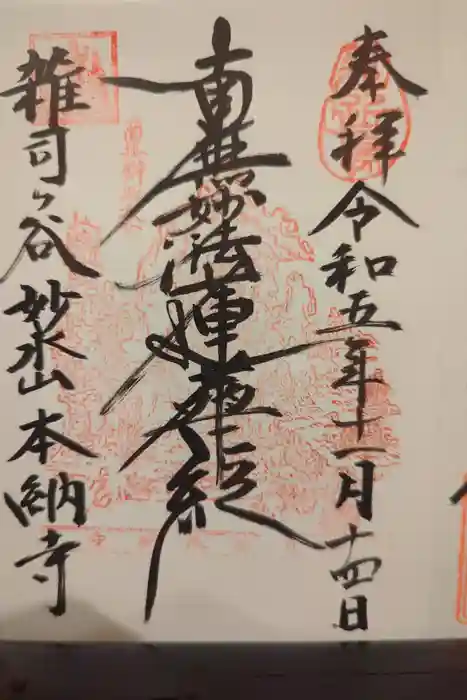 奉拝 令和五年十一月十四日
南無妙法蓮華経
雑司ケ谷 妙永山 本納寺